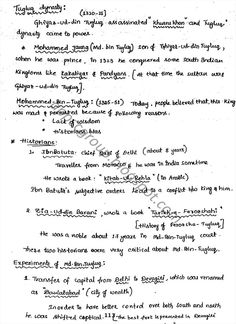 Tuglaq dynasty: (1320-
Ghiyas-ud-din Tuglaq assasinated "Khusru khan" and Tuglaq
dynasty came to power.
* Mohammed Jauna (Md. bin Tuglaq) son of Ghiyas-ud-din Tuglaq,
when he was prince, in 1323 he conquered some South Indian
Kingdoms like Kakatiyas & Pandyans. [At that time the sultan were
Ghiyas-ud-din Tuglaq].
Mohammed-Bin-Tuglaq: Today, people believed that, this king
was mad & because of following reasons.
• Lack of wisdom
• Historians bias
* Historians:
1. IbnBatuta: Chief of Delhi (about 8 years)
Traveller from Morocco & he was in India sometime
He wrote a book - "Kitab-ul-Rehla" (in Arabic)
Ibn Batuta's subjective orders lead to a conflict b/w king & him.
2. Zia-uddin Barani, wrote a book "Tarikh-i-Ferozshahi"
[History of Ferozsha-Tuglaq]
He was a noble about 15 years in court Md-Bin-Tuglaq court.
These two historians were very critical about Md-Bin-Tuglaq.
Experiments of Md-bin-Tuglaq:
1. Transfer of capital from Delhi to Devagiri, which was renamed
as "Daulatabad" (city of wealth)
Inorder to have better control over both south and north
he was shifted captical.